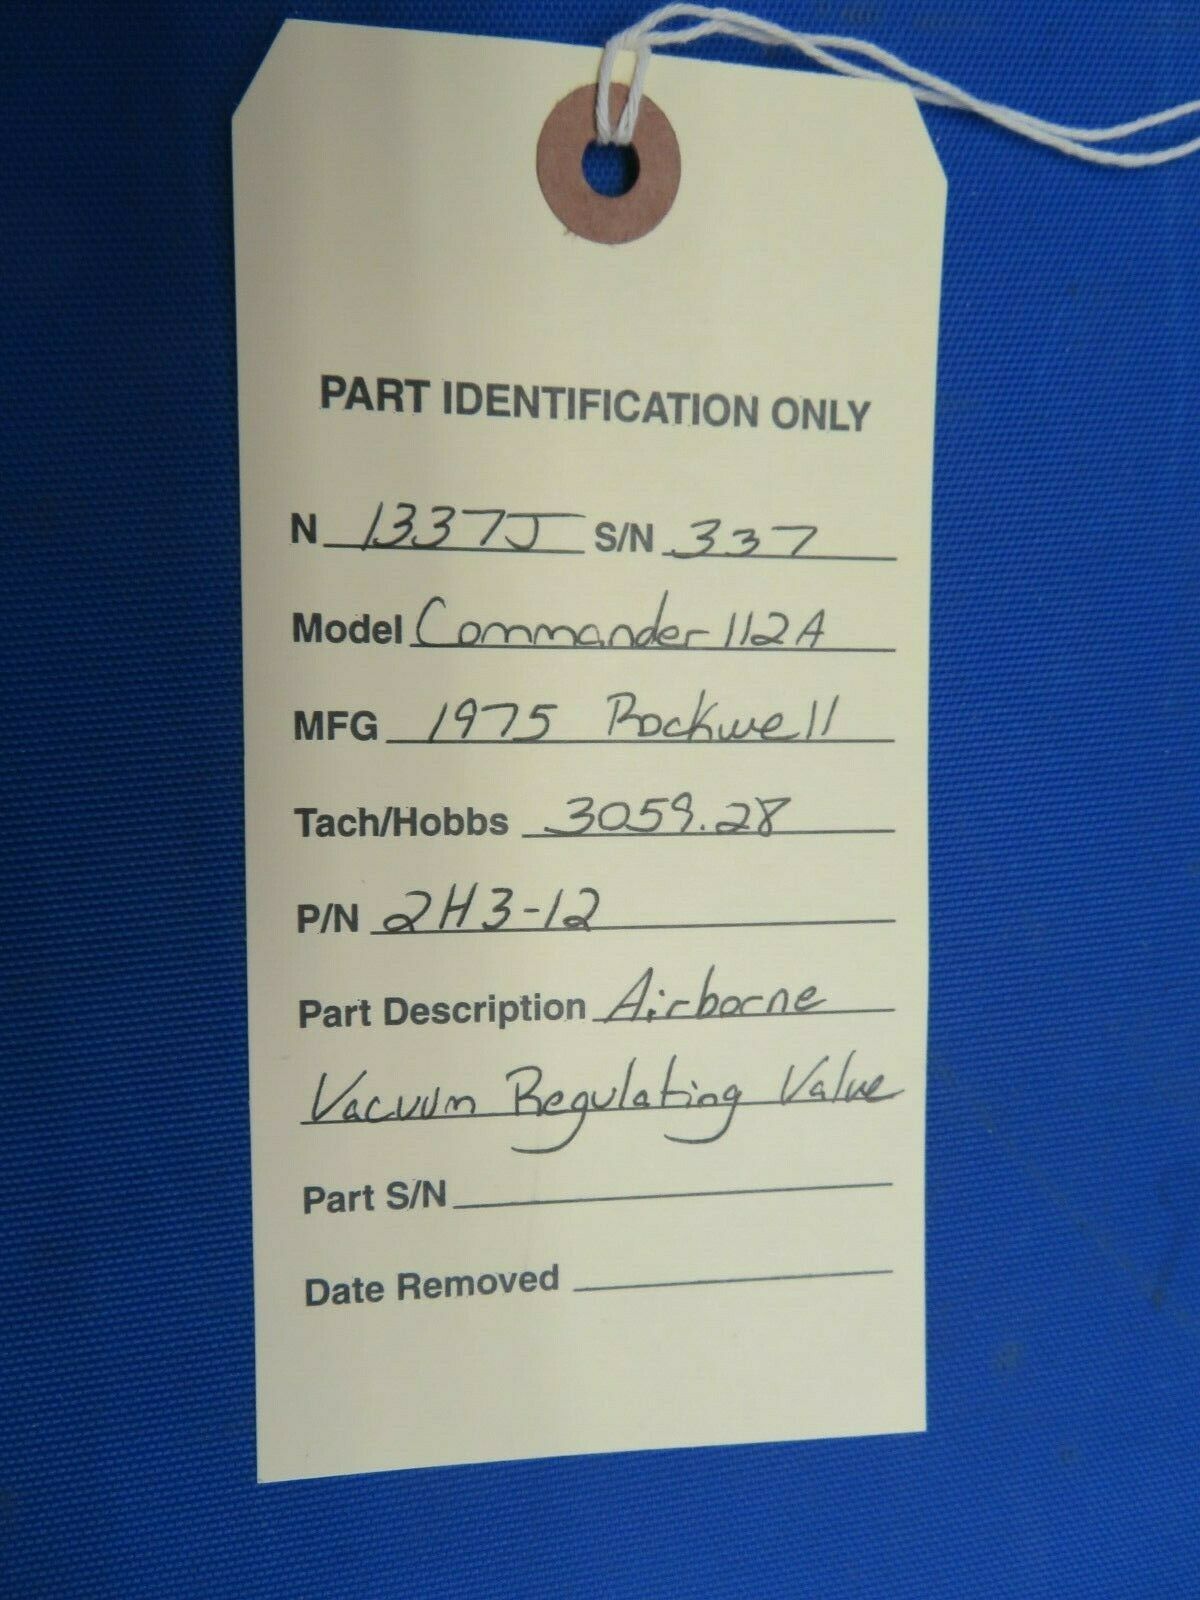 PART IDENTIFICATION ONLY
N 1337J S/N 337
Model Commander 112A
MFG 1975 Rockwell
Tach/Hobbs 3059.28
P/N 2H3-12
Part Description Airborne
Vacuum Regulating Valve
Part S/N
Date Removed